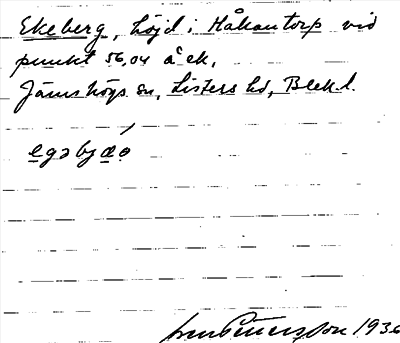 Ekeberg, höjd i Håkantorp vid
punkt 56,04 å ek.
Jämshögs sn, Listers hd, Blek.l.
Pettersson 1936